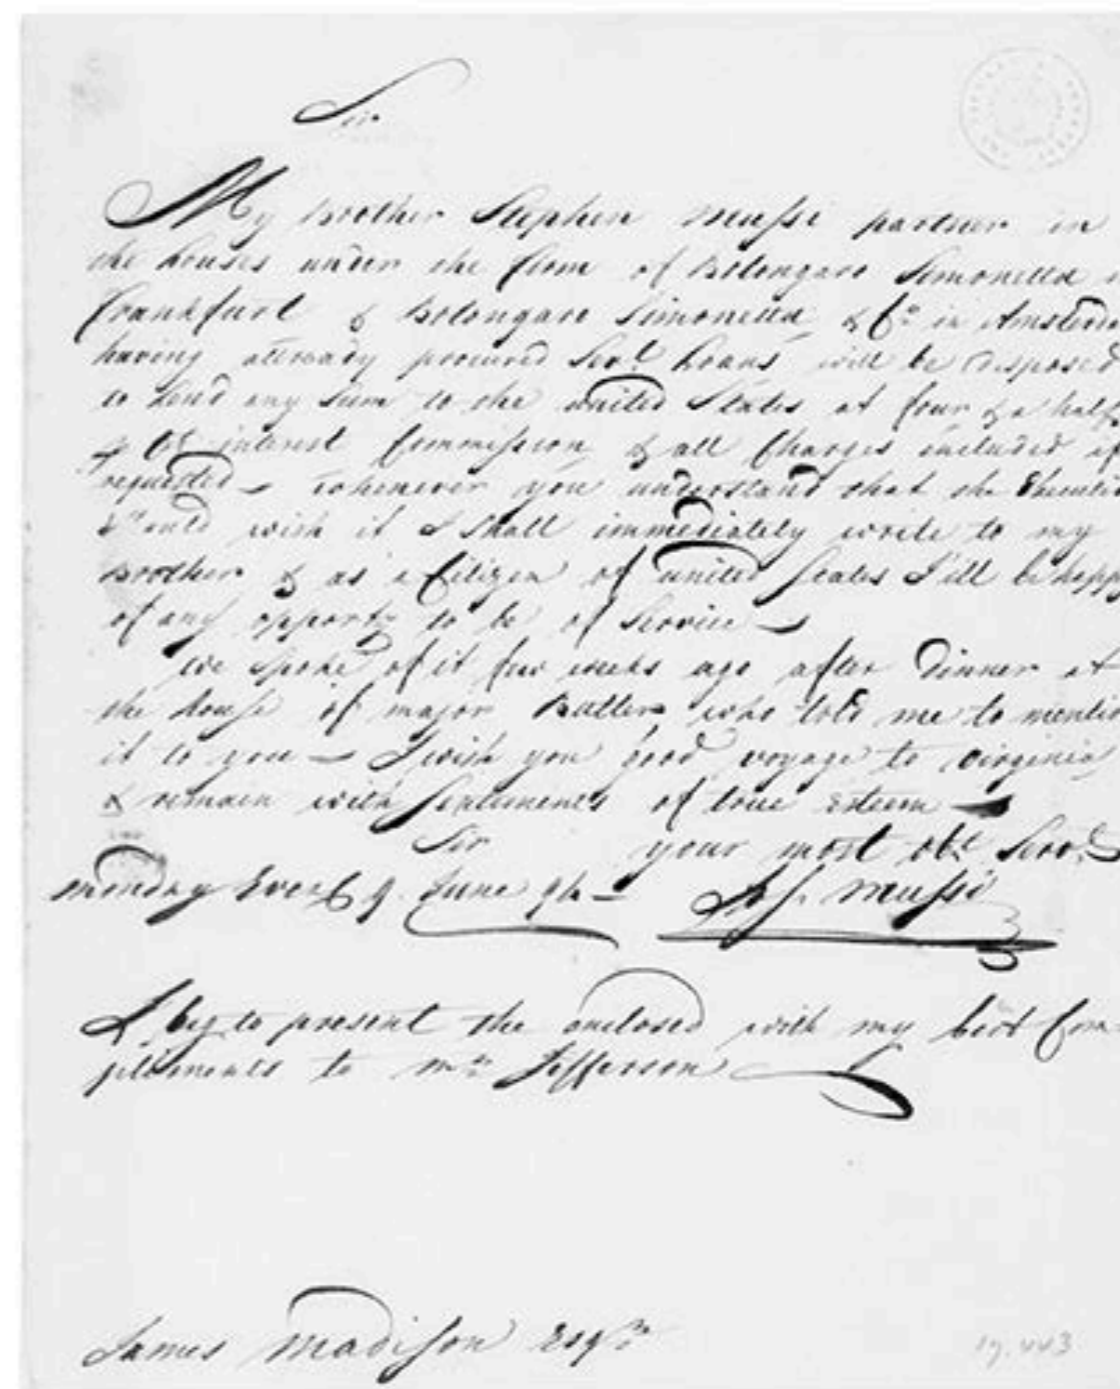 Sir
My brother Stephen Mussi partner in
the houses under the firm of Bolongaro Simonetta
Frankfurt & Bolongaro Simonetta & Co. in Amsterda
having allready procured Sevl. Loans will be disposed
to Lend any Sum to the united States at four & a half
p Ct. interest Commission & all Charges included if
requested — whenever you understand that the Executi
Should wish it I Shall immediately write to my
Brother & as a Citizen of united States I'ill be happy
of any opporty to be of Service —
we spoke of it few weeks ago after Dinner at
the house of major Butler who told me to menti
it to you — I wish you good voyage to virginia
& remain with Sentiments of true esteem —
Sir your most obt. Servt.
monday Eveng 9 June 94 — Jos. Mussi
I beg to present the enclosed with my best Com
pliments to mr. Jefferson
James Madison Esqr.
19.443